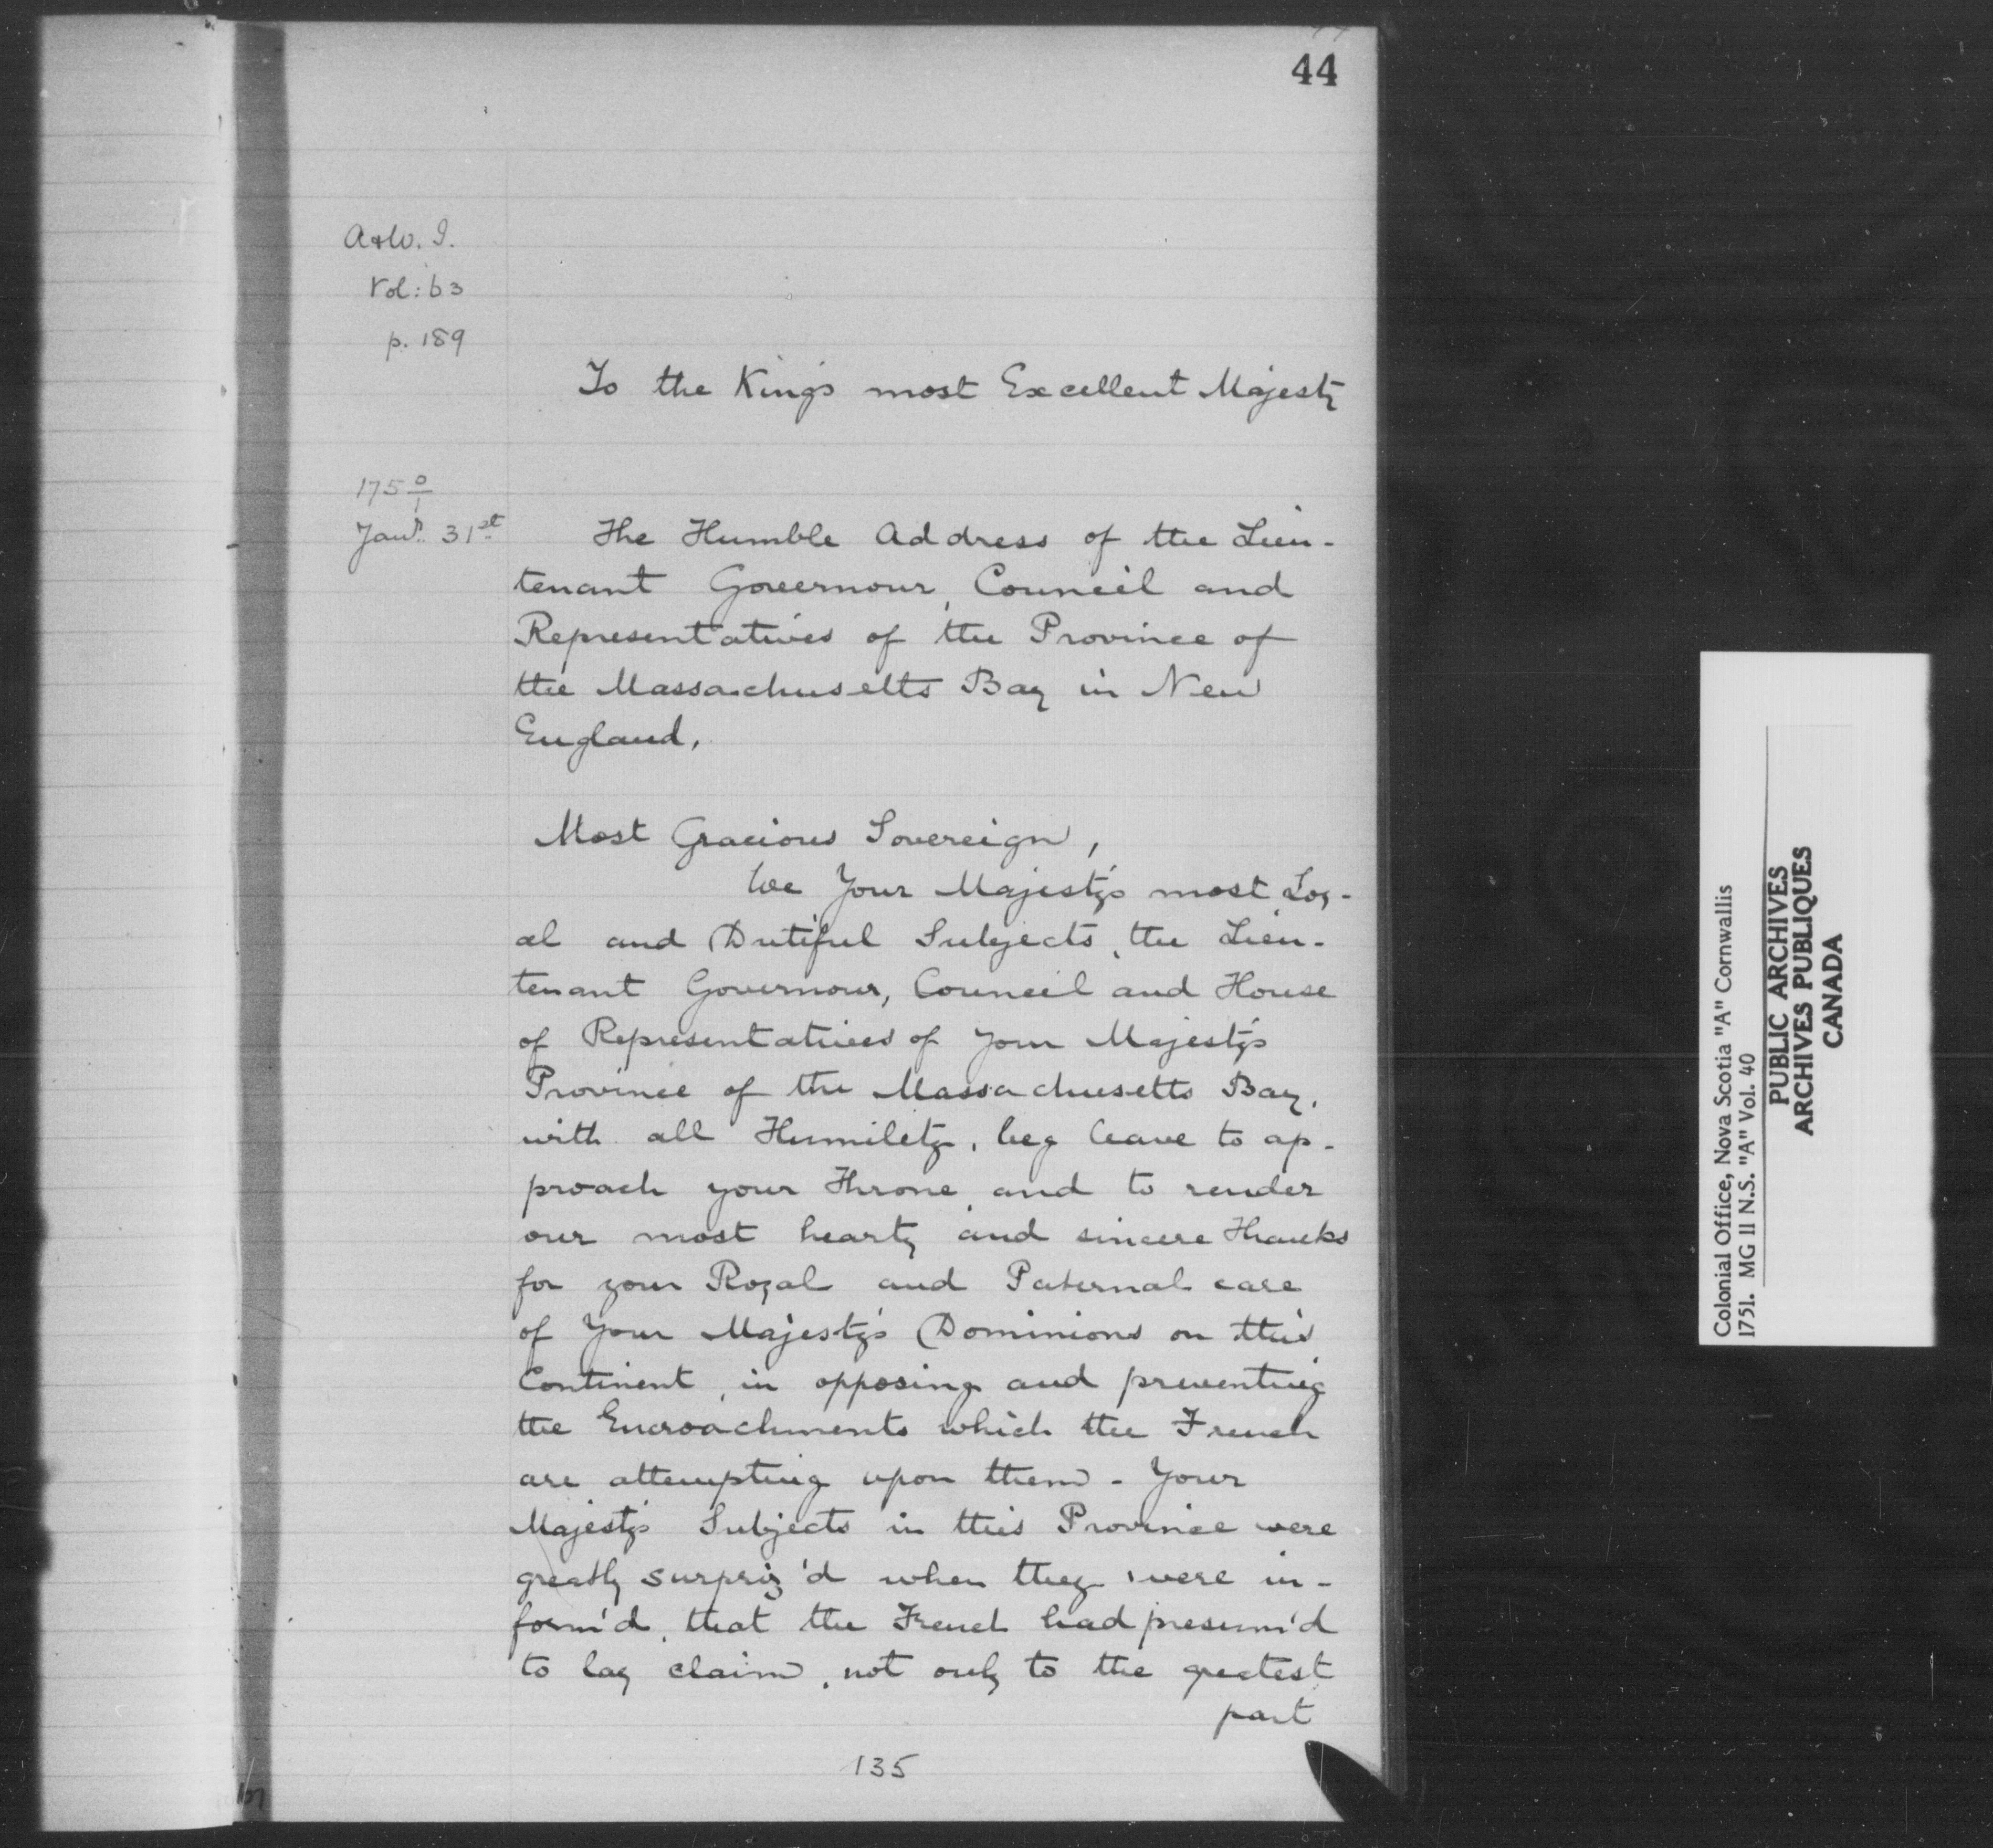 44
A & W. I.
Vol: 63
p. 189
To the King's most Excellent Majesty
175 0/1
Jany. 31st
The Humble Address of the Lieu-
tenant Governour, Council and
Representatives of the Province of
the Massachusetts Bay in New
England,
Most Gracious Sovereign,
We Your Majesty's most Loy-
al and Dutiful Subjects, the Lieu-
tenant Governour, Council and House
of Representatives of Your Majesty's
Province of the Massachusetts Bay,
with all Humilety, beg leave to ap-
proach your Throne, and to render
our most hearty and sincere Thanks
for your Royal and Paternal care
of Your Majesty's Dominions on this
Continent, in opposing and preventing
the Encroachments which the French
are attempting upon them - Your
Majesty's Subjects in this Province were
greatly surpriz'd when they were in-
form'd, that the French had presum'd
to lay claim, not only to the greatest
part
135
Colonial Office, Nova Scotia "A" Cornwallis
1751. MG 11 N.S. "A" Vol. 40
PUBLIC ARCHIVES
ARCHIVES PUBLIQUES
CANADA